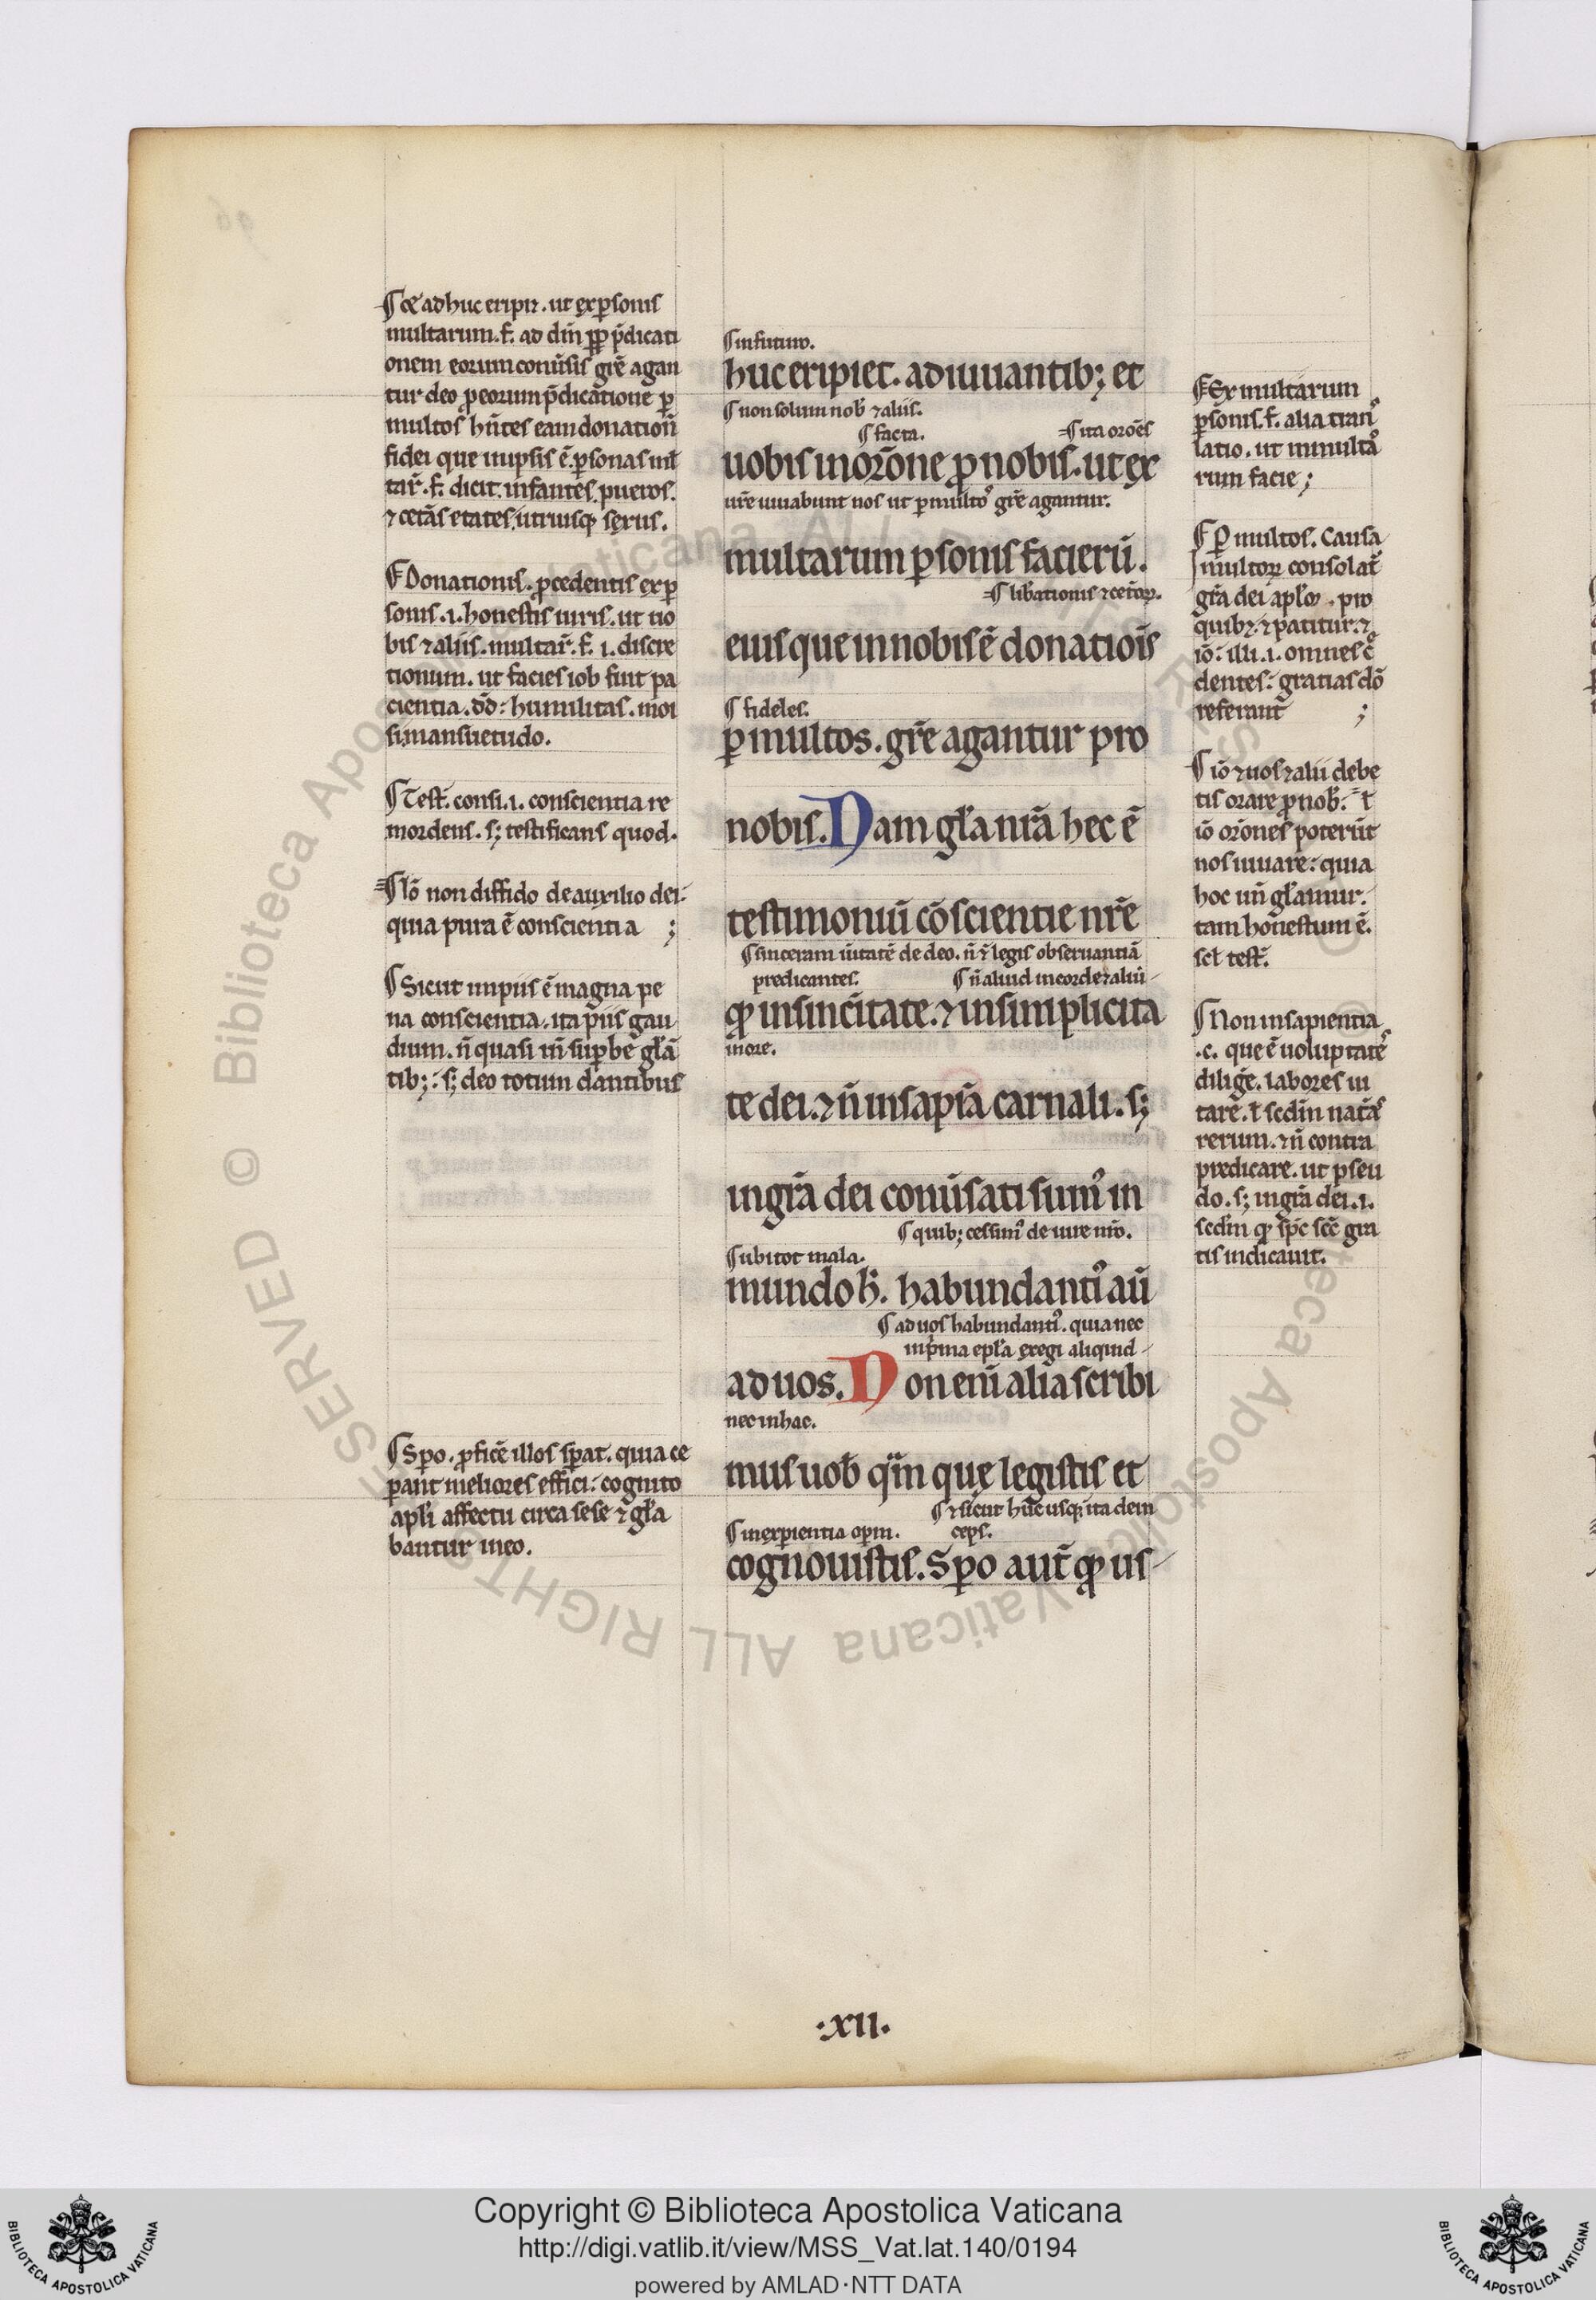 ¶ Et adhuc eripit. ut ex ꝑsonis
multarum. f. ad dn̄m ꝓpt̄ p̄dicati
onem eorum conũsis gr̃e agan
tur deo ꝓ eorum p̄dicatione ꝑ
multos hñtes eam donationẽ
fidei que in ipsis ẽ. ꝑsonas ml̃
tar̃. f. dicit. infantes. pueros.
⁊ cet̃as etates. utriusqꝫ sexus.
¶ Donationis. ꝓcedentis ex ꝑ
sonis .i. honestis uiris. ut uo
bis ⁊ aliis. multar̃. f. i. discre
tionum. ut facies iob fuit pa
cientia. dd̃: humilitas. moi
si. mansuetudo.
¶ Test̃. consi. i. conscientia re
mordens. sꝫ testificans quod.
¶ Iõ non diffido de auxilio dei:
quia pura ẽ conscientia ;
¶ Sicut impiis ẽ magna pe
na conscientia. ita piis gau
dium. ñ quasi uñ suꝑbe gl̃ã
tibꝫ: sꝫ deo totum dantibus
¶ Spo. ꝓficẽ illos sꝑat. quia ce
ꝑant meliores effici: cognito
apl̃i affectu circa sese ⁊ gl̃a
bantur in eo.
¶ in futuro.
huc eripiet. adiuuantibꝫ et
¶ non solum nob̃ ⁊ aliis.
¶ facta. ¶ ita orõẽs
uobis in orõne ꝓ nobis. ut ex
ur̃e iuuabunt nos ut ꝑ multos gr̃e agantur.
multarum ꝑsonis facierũ.
¶ lib̃ationis ⁊ cet̃oꝝ.
eius que in nobis ẽ donatiois
¶ fideles.
ꝑ multos. gr̃e agantur pro
nobis. Nam gl̃a nr̃a hec ẽ
testimoniũ cõscientie nr̃e
¶ sinceram ũitatẽ de deo. ñ ⁊ legis obseruantiã
predicantes. ¶ ñ aliud in corde ⁊ aliũ
qꝫ in sinc̃itate. ⁊ in simplicita
in ore.
te dei. ⁊ ñ in sapĩa carnali. sꝫ
in gr̃a dei conũsati sumꝰ in
¶ quibꝫ cessimꝰ de iure nr̃o.
¶ ubi tot mala.
mundo h̃. habundantiꝰ aũ
¶ ad uos habundantiꝰ. quia nec
in p̃ma epl̃a exegi aliquid
ad uos. Non enĩ alia scribi
nec in hac.
mus uob̃ q̃m que legistis et
¶ ⁊ sicut hucusqꝫ ita dein
¶ in exꝑientia oꝑum. ceps.
cognouistis. Sꝑo aut̃ qꝫ us
¶ Ex multarum
ꝑsonis. f. alia trans
latio. ut in multa
rum facie ;
¶ ꝑ multos. Causa
multoꝝ consolat̃
gr̃a dei apl̃os. pro
quibꝫ ⁊ patitur. ⁊
iõ: illi .i. omnes c̃
dentes: gratias dõ
referant̃ ;
¶ iõ ⁊ uos ⁊ alii debe
tis orare ꝓ nob̃. ł
iõ orõnes poterũt
nos iuuare: quia
hoc uñ gl̃amur.
tam honestum ẽ.
scł test̃.
¶ Non in sapientia
.c. que ẽ uoluptates
diligẽ. labores ui
tarẽ. ł sedm̃ nat̃as
rerum. ⁊ ñ contra
predicare. ut pseu
do. sꝫ in gr̃a dei .i.
sedm̃ qꝫ sp̃c scẽ gra
tis indicauit.
·XII·
Copyright © Biblioteca Apostolica Vaticana
http://digi.vatlib.it/view/MSS_Vat.lat.140/0194
powered by AMLAD·NTT DATA